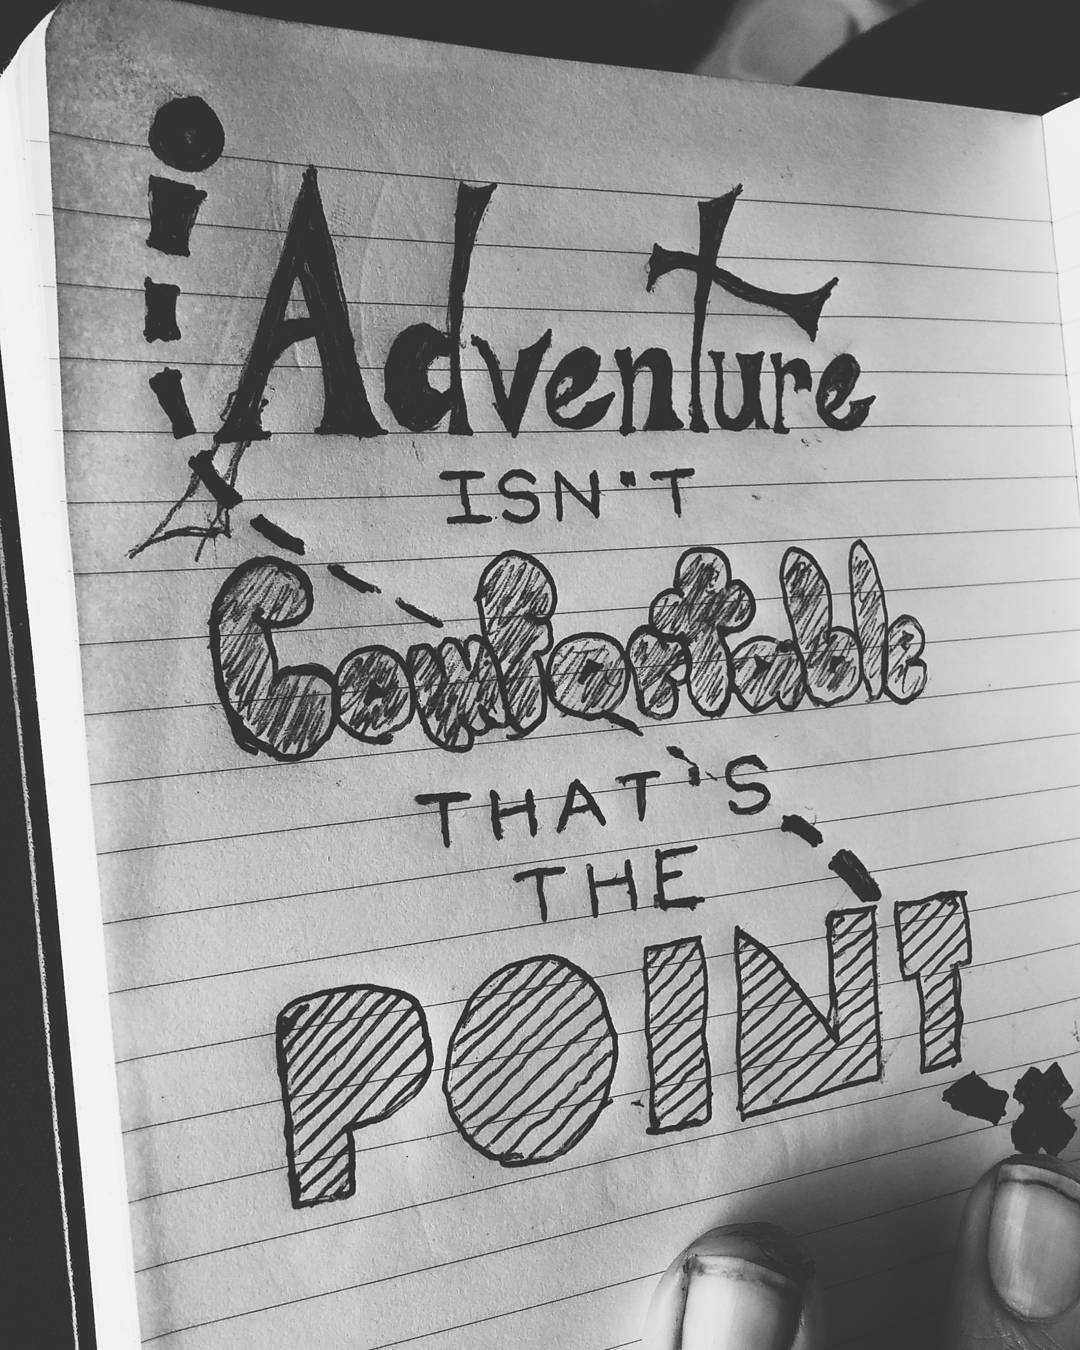 Adventure
ISN"T
Comfortable
THAT'S
THE
POINT